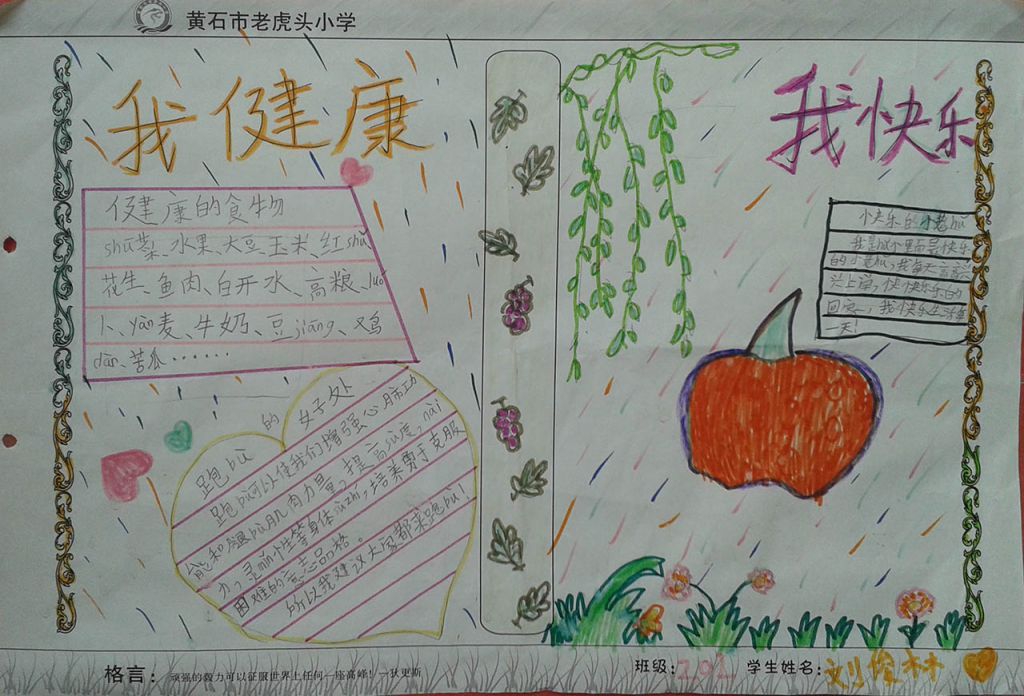 黄石市老虎头小学
我健康
健康的食物
shū菜、水果、大豆、玉米、红shǔ
花生、鱼肉、白开水、高粮、luó
卜、yàn麦、牛奶、豆jiāng、鸡
dàn、苦瓜······
跑bù的好处
跑bù可以使我们增强心肺功
能和腿bù肌肉力量,提高sù度,nài
力,灵mǐn性等身体sùzhì,培养勇于克服
困难的意志品格。
所以我建议大家都来跑bù!
我快乐
小快乐的小老hǔ
的小老hǔ,我每天高高兴
兴上学,快快乐乐的
回家,我快乐生活每
一天!
格言:顽强的毅力可以征服世界上任何一座高峰!—狄更斯
班级:201 学生姓名:刘俊林